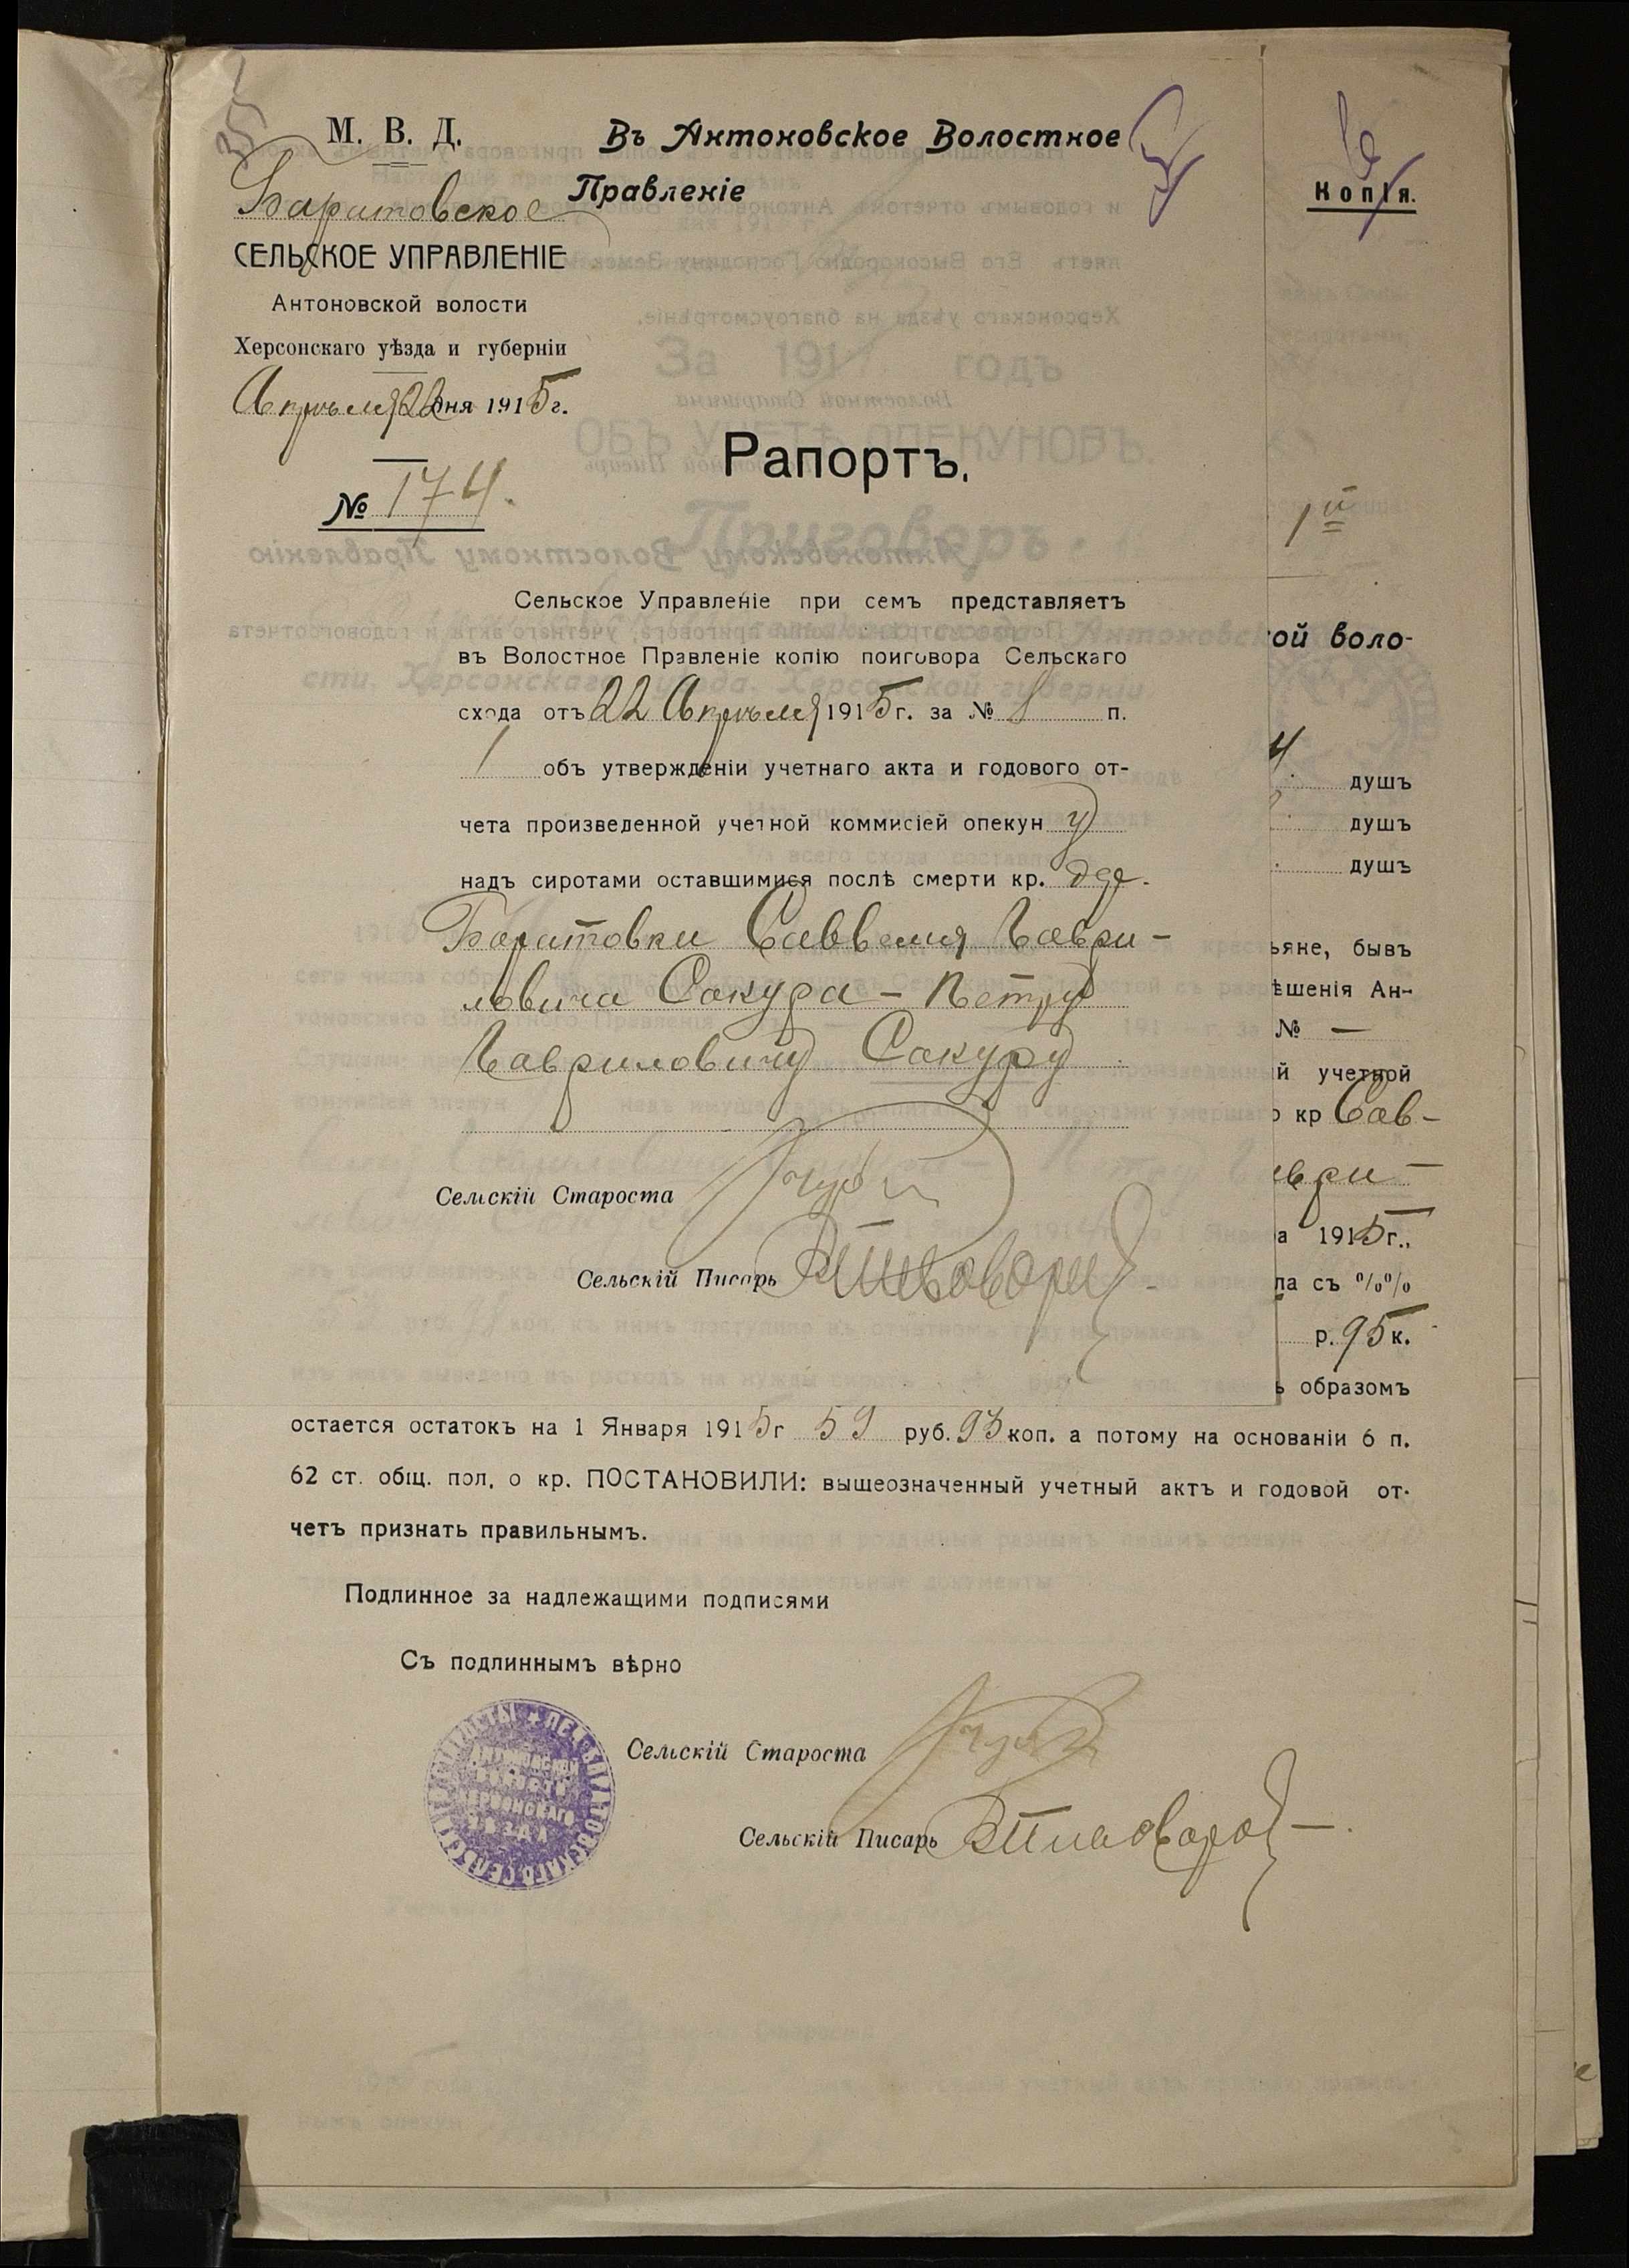 М. В. Д.
Баратовское
СЕЛЬСКОЕ УПРАВЛЕНІЕ
Антоновской волости
Херсонскаго уѣзда и губерніи
Апрѣля 22 дня 1915 г.
№ 174.
Въ Антоновское Волостное
Правленіе
Рапортъ.
Сельское Управленіе при семъ представляетъ
въ Волостное Правленіе копію поиговора Сельскаго
схода отъ 22 Апрѣля 1915 г. за № 8 п.
1 объ утвержденіи учетнаго акта и годового от-
чета произведенной учетной коммисіей опекун у
надъ сиротами оставшимися послѣ смерти кр. дер.
Баратовки Савветия Гаври-
ловича Сакура - Петру
Гавриловичу Сакуру
Сельскій Староста
Сельскій Писарь
Копія.
1й
ой воло-
4
душъ
душъ
душъ
ьяне, бывъ
ѣшенія Ан-
№ —
й учетной
о кр Сав-
ври-
а 1915 г.,
ла съ %%
р. 95 к.
ь образомъ
остается остатокъ на 1 Января 1915 г 59 руб. 95 коп. а потому на основаніи 6 п.
62 ст. общ. пол. о кр. ПОСТАНОВИЛИ: вышеозначенный учетный актъ и годовой от-
четъ признать правильнымъ.
Подлинное за надлежащими подписями
Съ подлиннымъ вѣрно
Сельскій Староста
Сельскій Писарь
АНТОНОВСКОЙ
ВОЛОСТИ
ХЕРСОНСКАГО
УѢЗДА